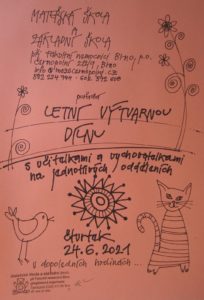 MATEŘSKÁ ŠKOLA
A
ZÁKLADNÍ ŠKOLA
při Fakultní nemocnici Brno, p.o.
Černopolní 22/9, Brno
pořádá
LETNÍ VÝTVARNOU
DÍLNU
s učitelkami a vychovatelkami
na jednotlivých odděleních
čtvrtek
24. 6. 2021
v dopoledních hodinách ...